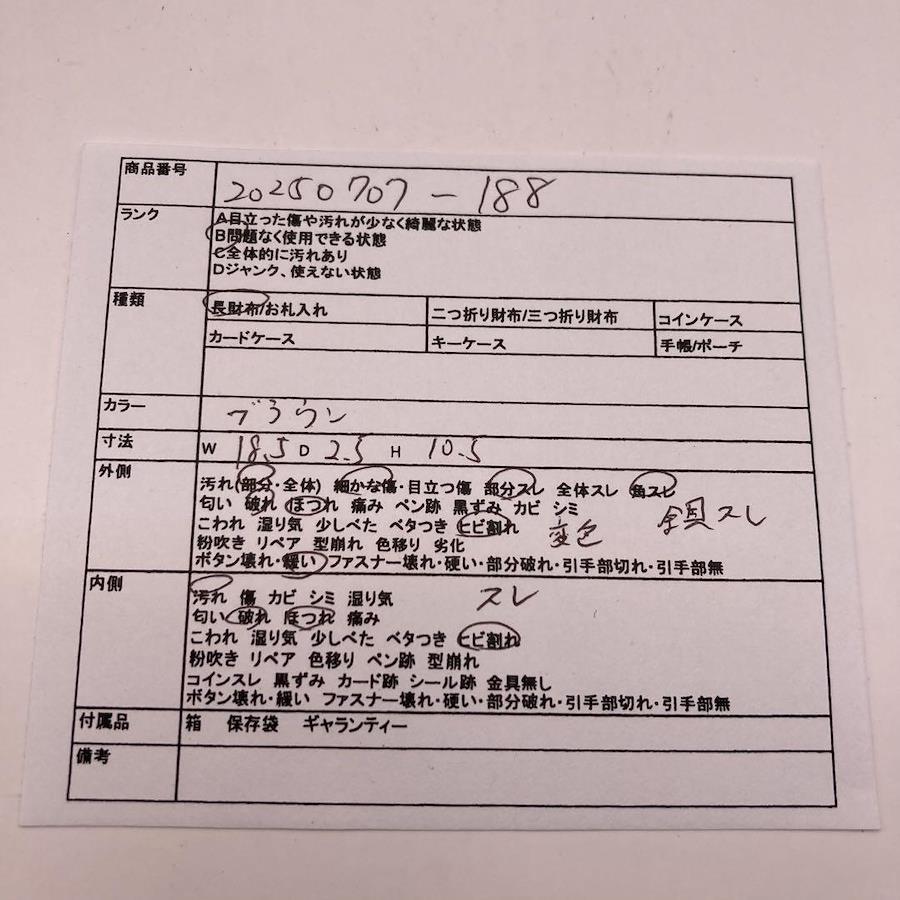 商品番号 20250707-188
ランク A目立った傷や汚れが少なく綺麗な状態
B問題なく使用できる状態
C全体的に汚れあり
Dジャンク、使えない状態
種類 長財布/お札入れ 二つ折り財布/三つ折り財布 コインケース
カードケース キーケース 手帳/ポーチ
カラー ブラウン
寸法 W 18.5 D 2.5 H 10.5
外側 汚れ(部分・全体) 細かな傷・目立つ傷 部分スレ 全体スレ 角スレ
匂い 破れ ほつれ 痛み ペン跡 黒ずみ カビ シミ
こわれ 湿り気 少しべた ベタつき ヒビ割れ 変色 金具スレ
粉吹き リペア 型崩れ 色移り 劣化
ボタン壊れ・緩い ファスナー壊れ・硬い・部分破れ・引手部切れ・引手部無
内側 汚れ 傷 カビ シミ 湿り気 スレ
匂い 破れ ほつれ 痛み
こわれ 湿り気 少しべた ベタつき ヒビ割れ
粉吹き リペア 色移り ペン跡 型崩れ
コインスレ 黒ずみ カード跡 シール跡 金具無し
ボタン壊れ・緩い ファスナー壊れ・硬い・部分破れ・引手部切れ・引手部無
付属品 箱 保存袋 ギャランティー
備考